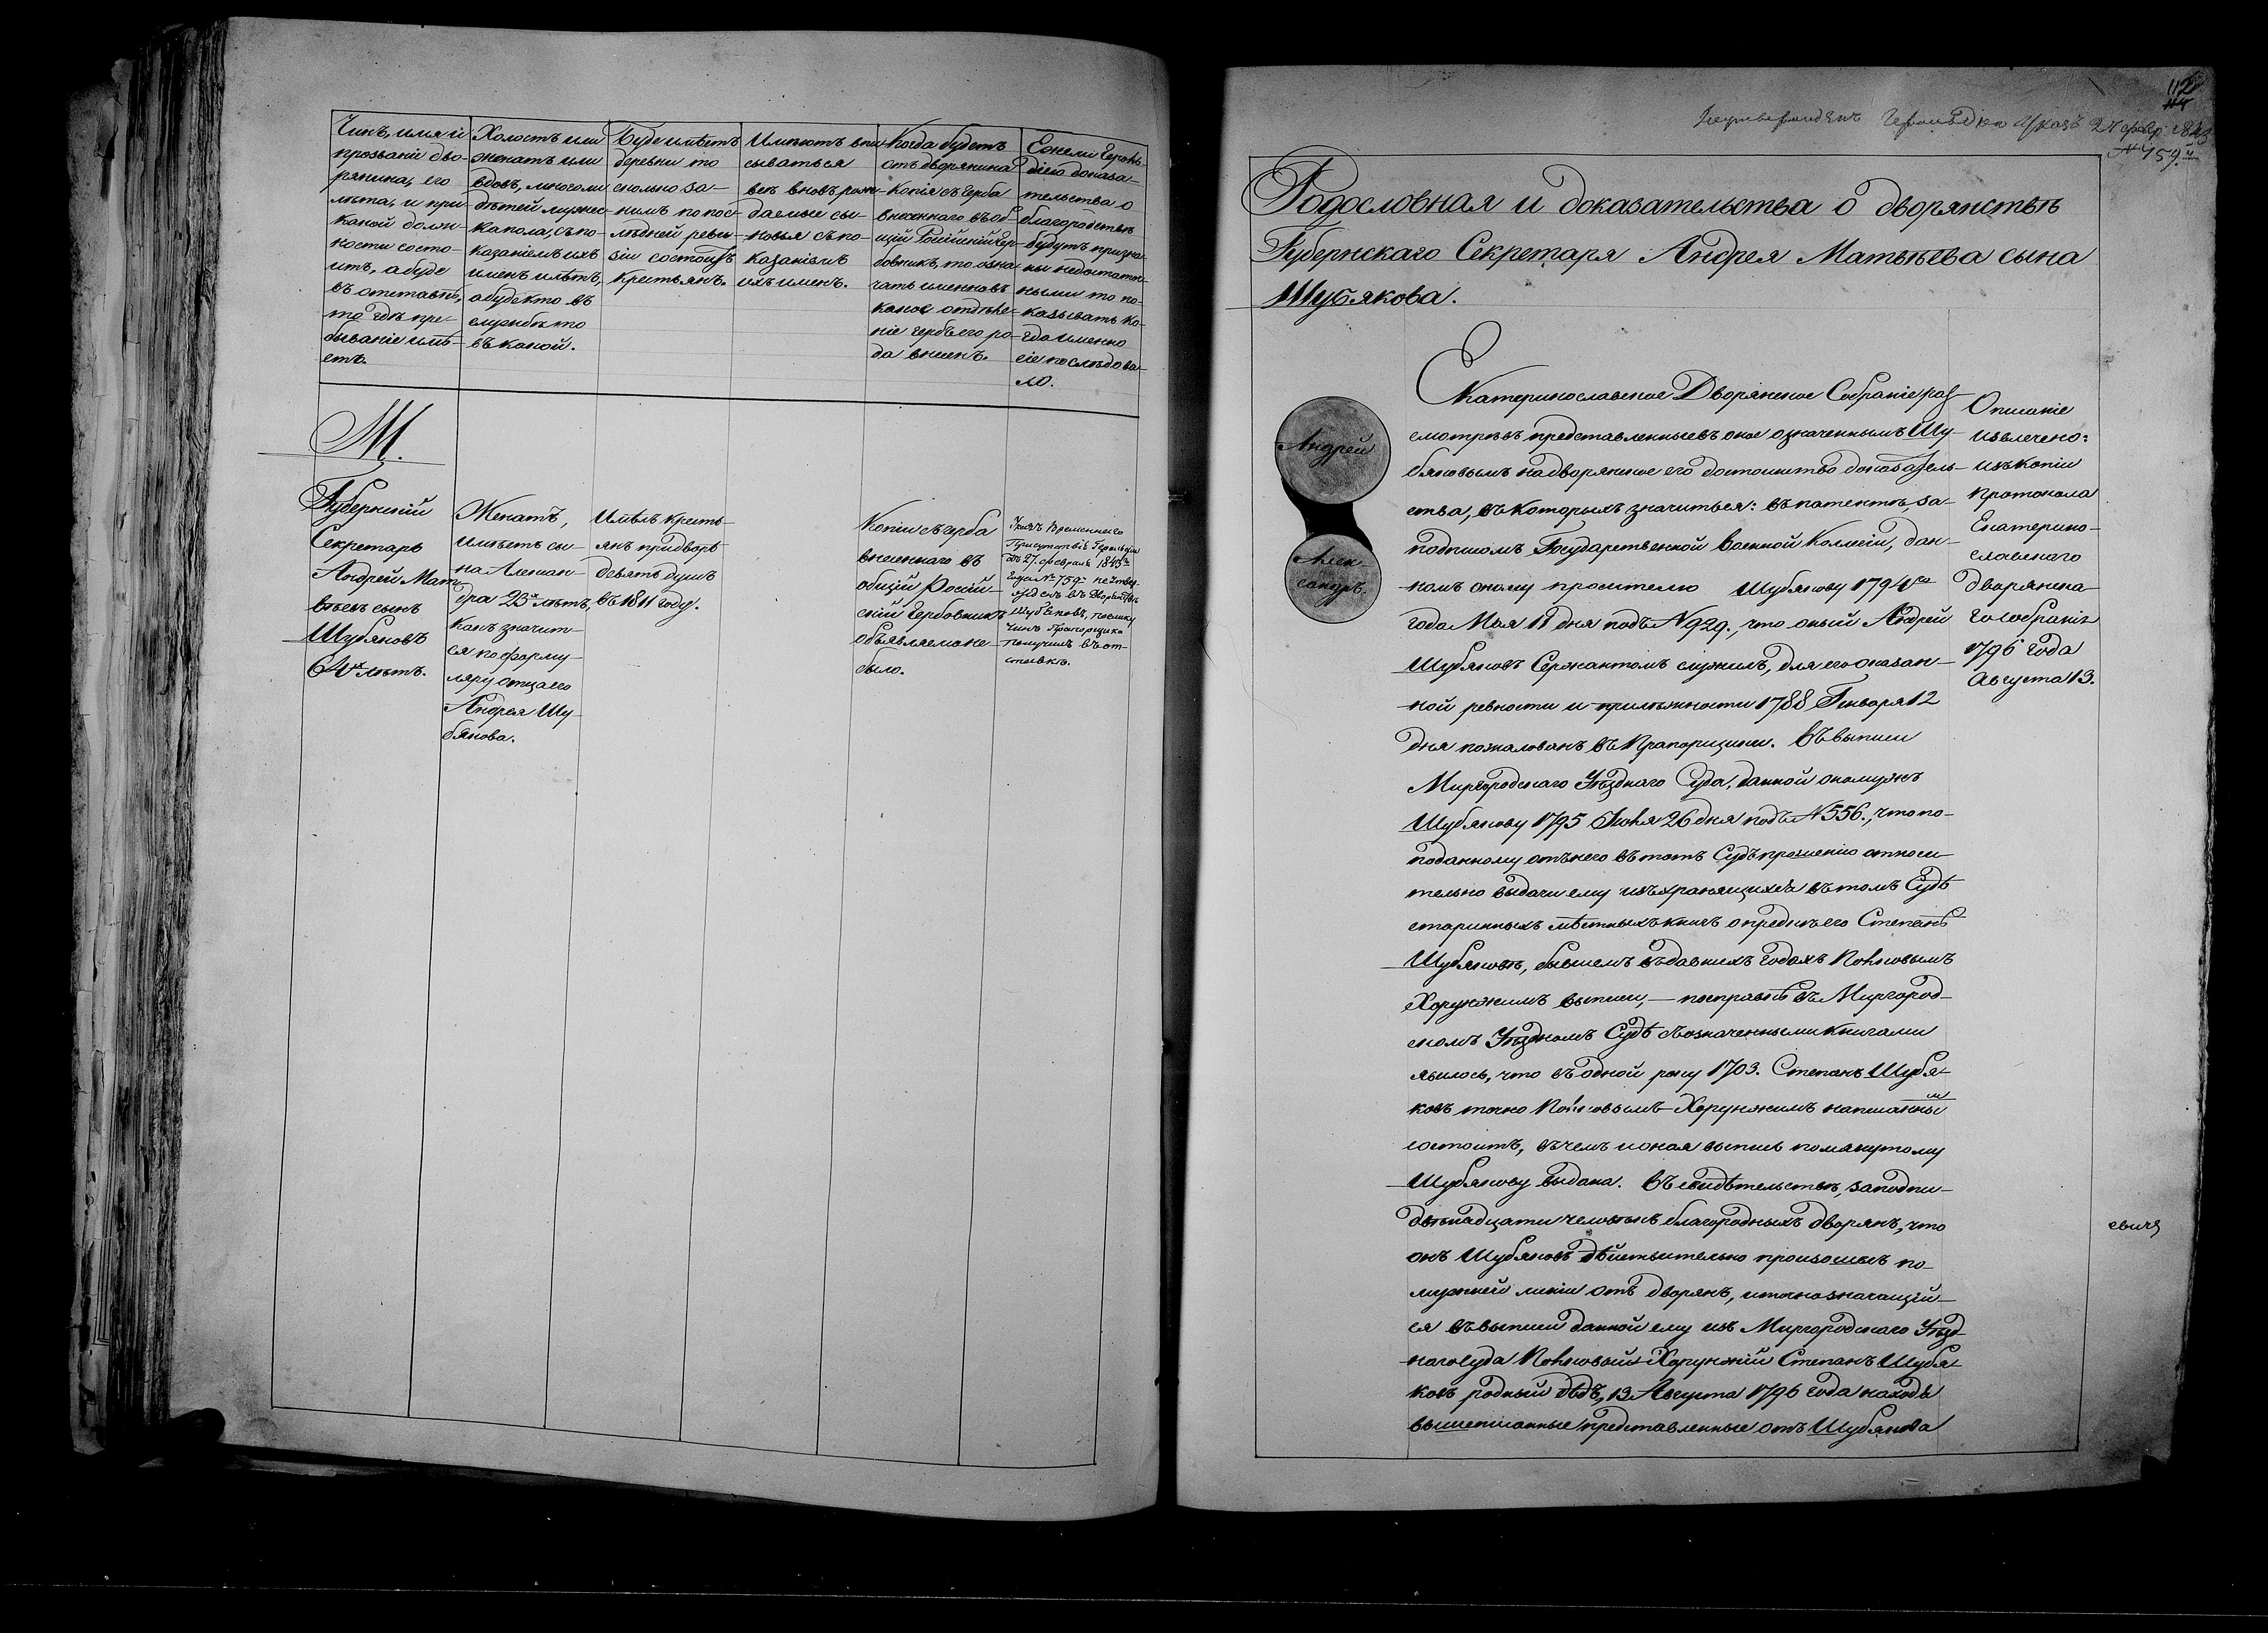 Чинъ, имя и
прозваніе дво-
рянина, его
лѣта, и при
какой долж-
ности состо-
итъ, а буде
въ отставкѣ,
то гдѣ пре-
бываніе имѣ-
етъ.
Холостъ или
женатъ или
вдовъ, много ли
дѣтей мужес-
ка пола, съ по-
казаніемъ ихъ
именъ и лѣтъ,
а буде кто въ
службѣ то
въ какой.
Буде имѣетъ
деревни то
сколько за
нимъ по пос-
лѣдней реви-
зіи состоитъ
крестьянъ.
Имѣютъ впи-
сываться
всѣ вновь рож-
даемые сы-
новья съ по-
казаніемъ
ихъ именъ.
Когда будетъ
отъ дворянина
копія съ герба
внесеннаго въ об-
щій Россійскій Гер-
бовникъ, то озна-
чать именно въ
какое отдѣле-
ніе гербъ его ро-
да внесенъ.
Ежели Героль-
діею доказа-
тельства о
благородствѣ
будутъ призна-
ны недостаточ-
ными то по-
казывать ко-
гда именно
сіе послѣдова-
ло.
Ш.
Губернскій
Секретарь
Андрей Мат-
вѣевъ сынъ
Шубяковъ
64х лѣтъ.
Женатъ,
имѣетъ сы-
на Алексан-
дра 23х лѣтъ,
какъ значит-
ся по форму-
ляру отца его
Андрея Шу-
бякова.
Имѣлъ кресть-
янъ при дворѣ
девять душъ
въ 1811 году.
Копіи съ герба
внесеннаго въ
общій Россій-
скій Гербовникъ
объявляемо не
было.
Указъ Временнаго
Присутствія Герольдіи
отъ 27. Февраля 1843го
года № 759. не утвер-
жденъ въ Дворянствѣ
Шубяковъ, поелику
чинъ Прапорщика
получилъ въ от-
ставкѣ.
112
Неутвержденъ Герольдіею Указъ 27 февр. 1843
№ 759.
Родословная и доказательства о дворянствѣ
Губернскаго Секретаря Андрея Матвѣева сына
Шубякова.
Андрей
Алек-
сандръ.
Екатеринославское Дворянское Собраніе раз-
смотрѣвъ представленные въ оное означеннымъ Шу-
бяковымъ на дворянское его достоинство доказатель-
ства, въ которыхъ значиться: въ патентѣ, за
подписомъ Государственной Военной Коллегіи, дан-
номъ оному просителю Шубякову 1794го
года Мая 11 дня подъ № 929., что оный Андрей
Шубяковъ Сержантомъ служилъ, для его оказан-
ной ревности и прилѣжности 1788 Генваря 12
дня пожалованъ въ Прапорщики. Въ выписи
Миргородскаго Уѣзднаго Суда, данной оному жъ
Шубякову 1795 Іюля 26 дня подъ № 556., что по
поданному отъ него въ тотъ Судъ прошенію относи-
тельно выдачи ему изъ хранящихся въ томъ Судѣ
старинныхъ мѣстныхъ книгъ о предкѣ его Степанѣ
Шубяковѣ, бывшемъ въ давнихъ годахъ Полковымъ
Хорунжимъ выписи, — по справкѣ въ Миргород-
скомъ Уѣздномъ Судѣ съ означенными книгами
явилось, что въ одной року 1703. Степанъ Шубя-
ковъ точно Полковымъ Хорунжимъ написанный
состоитъ, въ чемъ и оная выпись помянутому
Шубякову выдана. Въ свидѣтельствѣ, за подпи-
двѣнадцати человѣкъ благородныхъ дворянъ, что
онъ Шубяковъ дѣйствительно произошелъ по
мужней линіи отъ дворянъ, и точно значащій-
ся въ выписи данной ему изъ Миргородскаго Уѣзд-
наго Суда Полковый Хорунжій Степанъ Шубя-
ковъ родный дѣдъ, 13 Августа 1796 года находя
вышеписанные представленные отъ Шубякова
Описаніе
извлечено
изъ копіи
протокола
Екатерино-
славскаго
дворянска-
го собранія
1796 года
Августа 13.